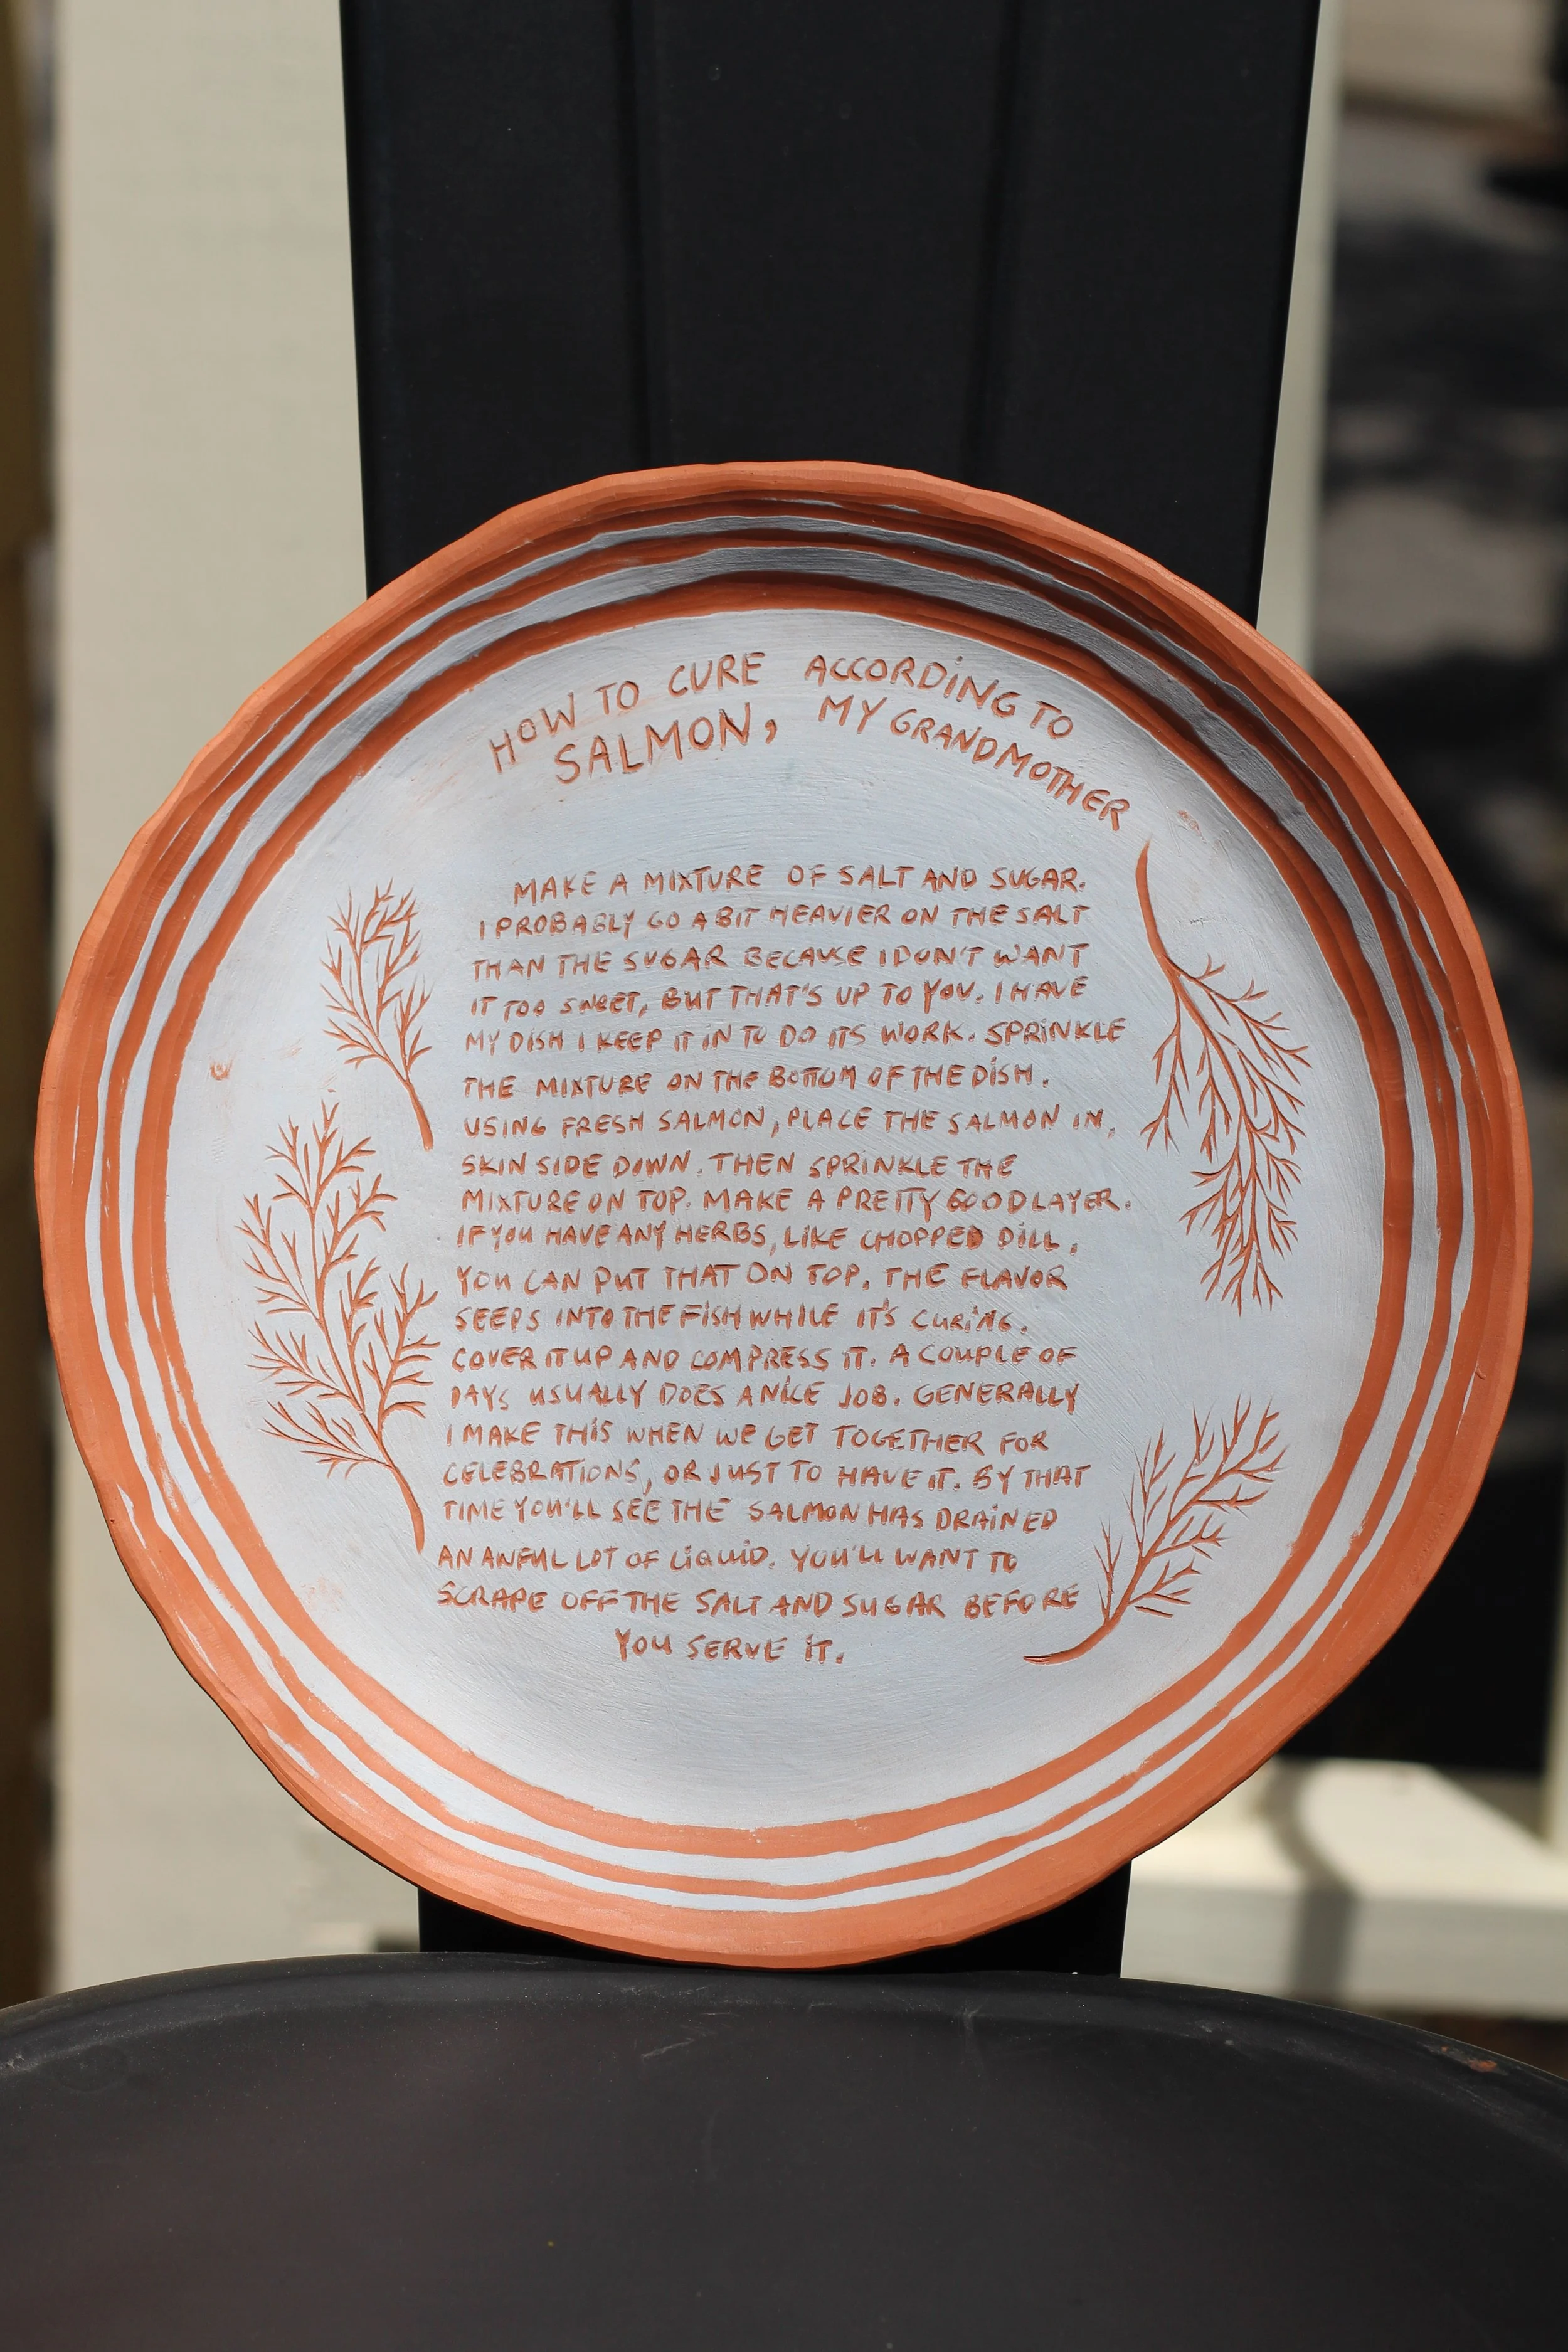 HOW TO CURE
SALMON,
ACCORDING TO
MY GRANDMOTHER
MAKE A MIXTURE OF SALT AND SUGAR.
I PROBABLY GO A BIT HEAVIER ON THE SALT
THAN THE SUGAR BECAUSE I DON'T WANT
IT TOO SWEET, BUT THAT'S UP TO YOU. I HAVE
MY DISH I KEEP IT IN TO DO ITS WORK. SPRINKLE
THE MIXTURE ON THE BOTTOM OF THE DISH.
USING FRESH SALMON, PLACE THE SALMON IN,
SKIN SIDE DOWN. THEN SPRINKLE THE
MIXTURE ON TOP. MAKE A PRETTY GOOD LAYER.
IF YOU HAVE ANY HERBS, LIKE CHOPPED DILL,
YOU CAN PUT THAT ON TOP. THE FLAVOR
SEEPS INTO THE FISH WHILE IT'S CURING.
COVER IT UP AND COMPRESS IT. A COUPLE OF
DAYS USUALLY DOES A NICE JOB. GENERALLY
I MAKE THIS WHEN WE GET TOGETHER FOR
CELEBRATIONS, OR JUST TO HAVE IT. BY THAT
TIME YOU'LL SEE THE SALMON HAS DRAINED
AN AWFUL LOT OF LIQUID. YOU'LL WANT TO
SCRAPE OFF THE SALT AND SUGAR BEFORE
YOU SERVE IT.